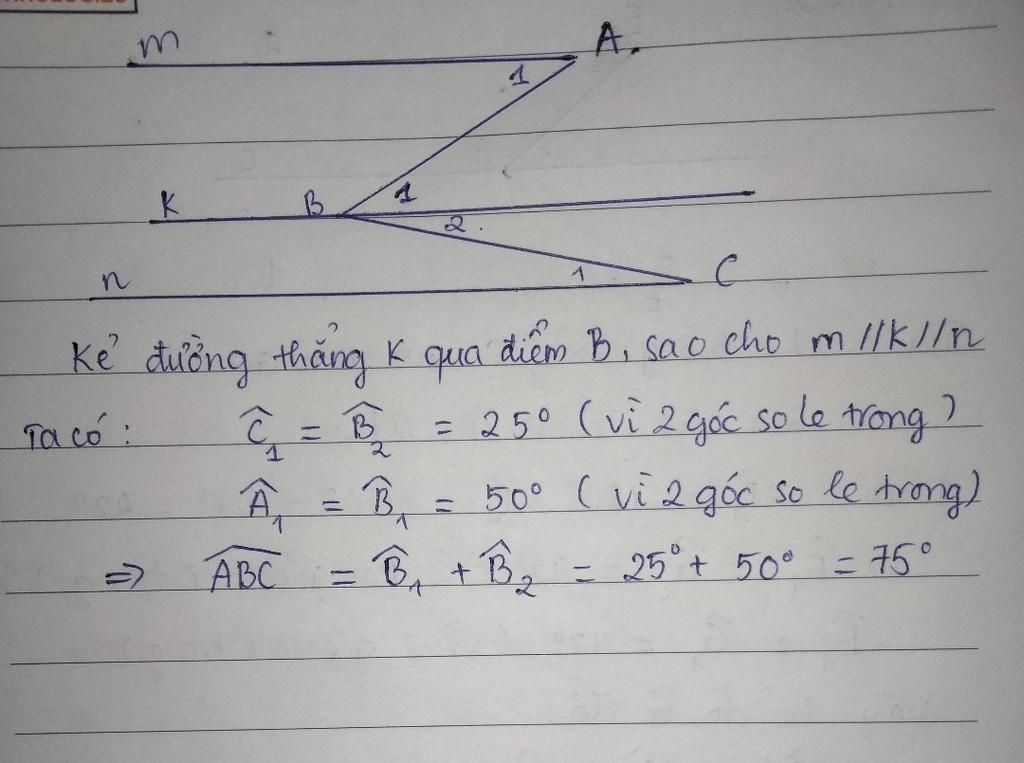 m A.
1
K B 1
2.
n 1 C
Kẻ đường thẳng K qua điểm B, sao cho m//k//n
Ta có: Ĉ₁ = B̂₂ = 25° (vì 2 góc so le trong)
Â₁ = B̂₁ = 50° (vì 2 góc so le trong)
⇒ \widehat{ABC} = B̂₁ + B̂₂ = 25° + 50° = 75°